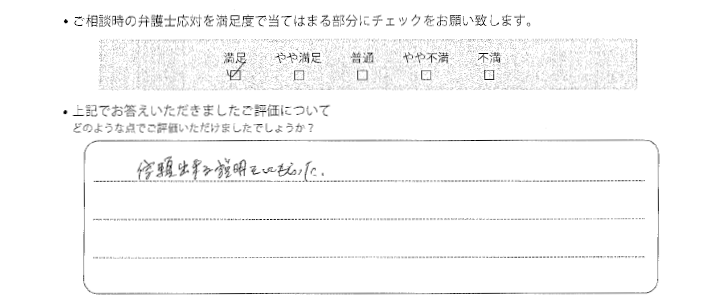 • ご相談時の弁護士応対を満足度で当てはまる部分にチェックをお願い致します。
満足 やや満足 普通 やや不満 不満
☑ □ □ □ □
• 上記でお答えいただきましたご評価について
どのような点でご評価いただけましたでしょうか？
信頼出来る説明をしてもらった。